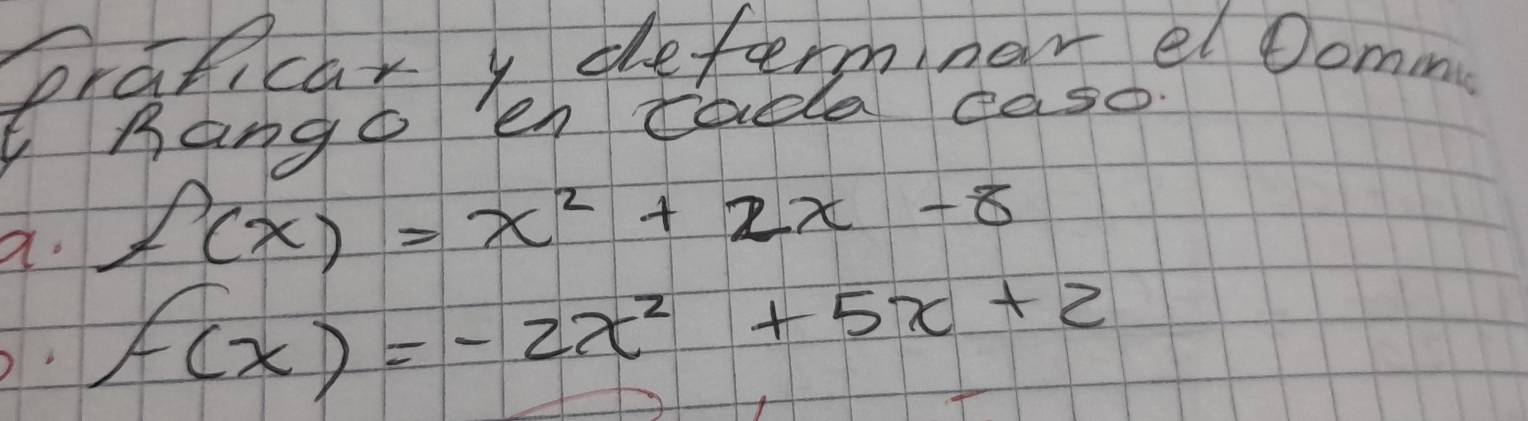 Gráficar y determinar el Domin
y Rango en cada caso.
a. f(x) = x² + 2x - 8
b. f(x) = - 2x² + 5x + 2